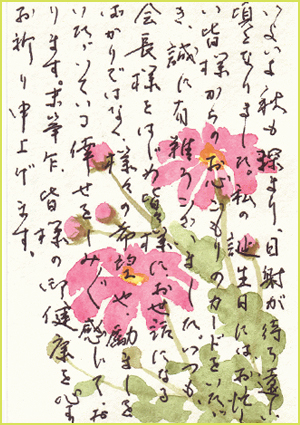 いよいよ秋も深まり、日射が待ち遠しい
頃となりました。私の誕生日にはお忙し
い皆様からのお心こもりのカードをいただ
き、誠に有難うございました。いつも
会長様をはじめ皆々様にお世話になる
ばかりではなく、様々の希望や励ましを
いただいている倖せをしみじみ感じてお
ります。末筆乍、皆様の御健康を
お祈り申上げます。